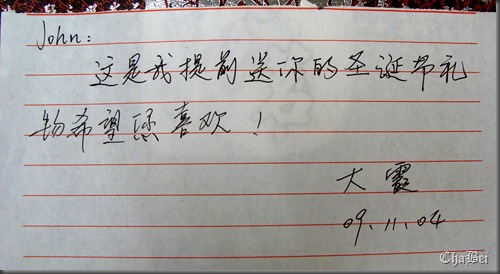 John:
这是我提前送你的圣诞节礼
物希望您喜欢!
大霞
09.11.04
ChaBei